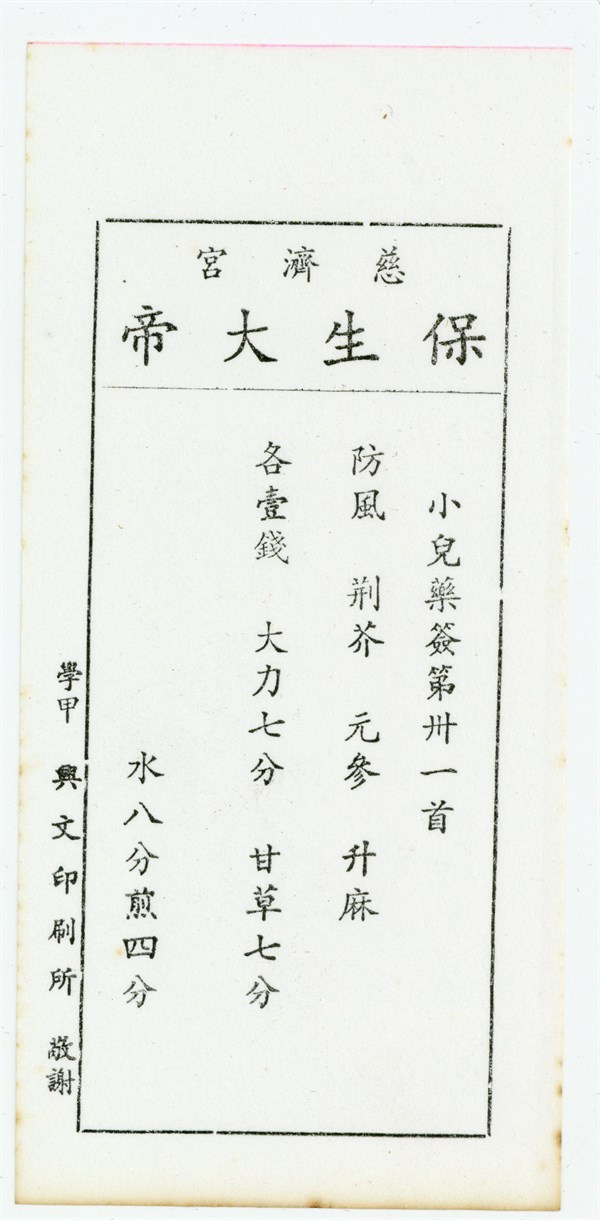 慈濟宮
保生大帝
小兒藥簽第卅一首
防風 荆芥 元參 升麻
各壹錢 大力七分 甘草七分
水八分煎四分
學甲 興文印刷所 敬謝